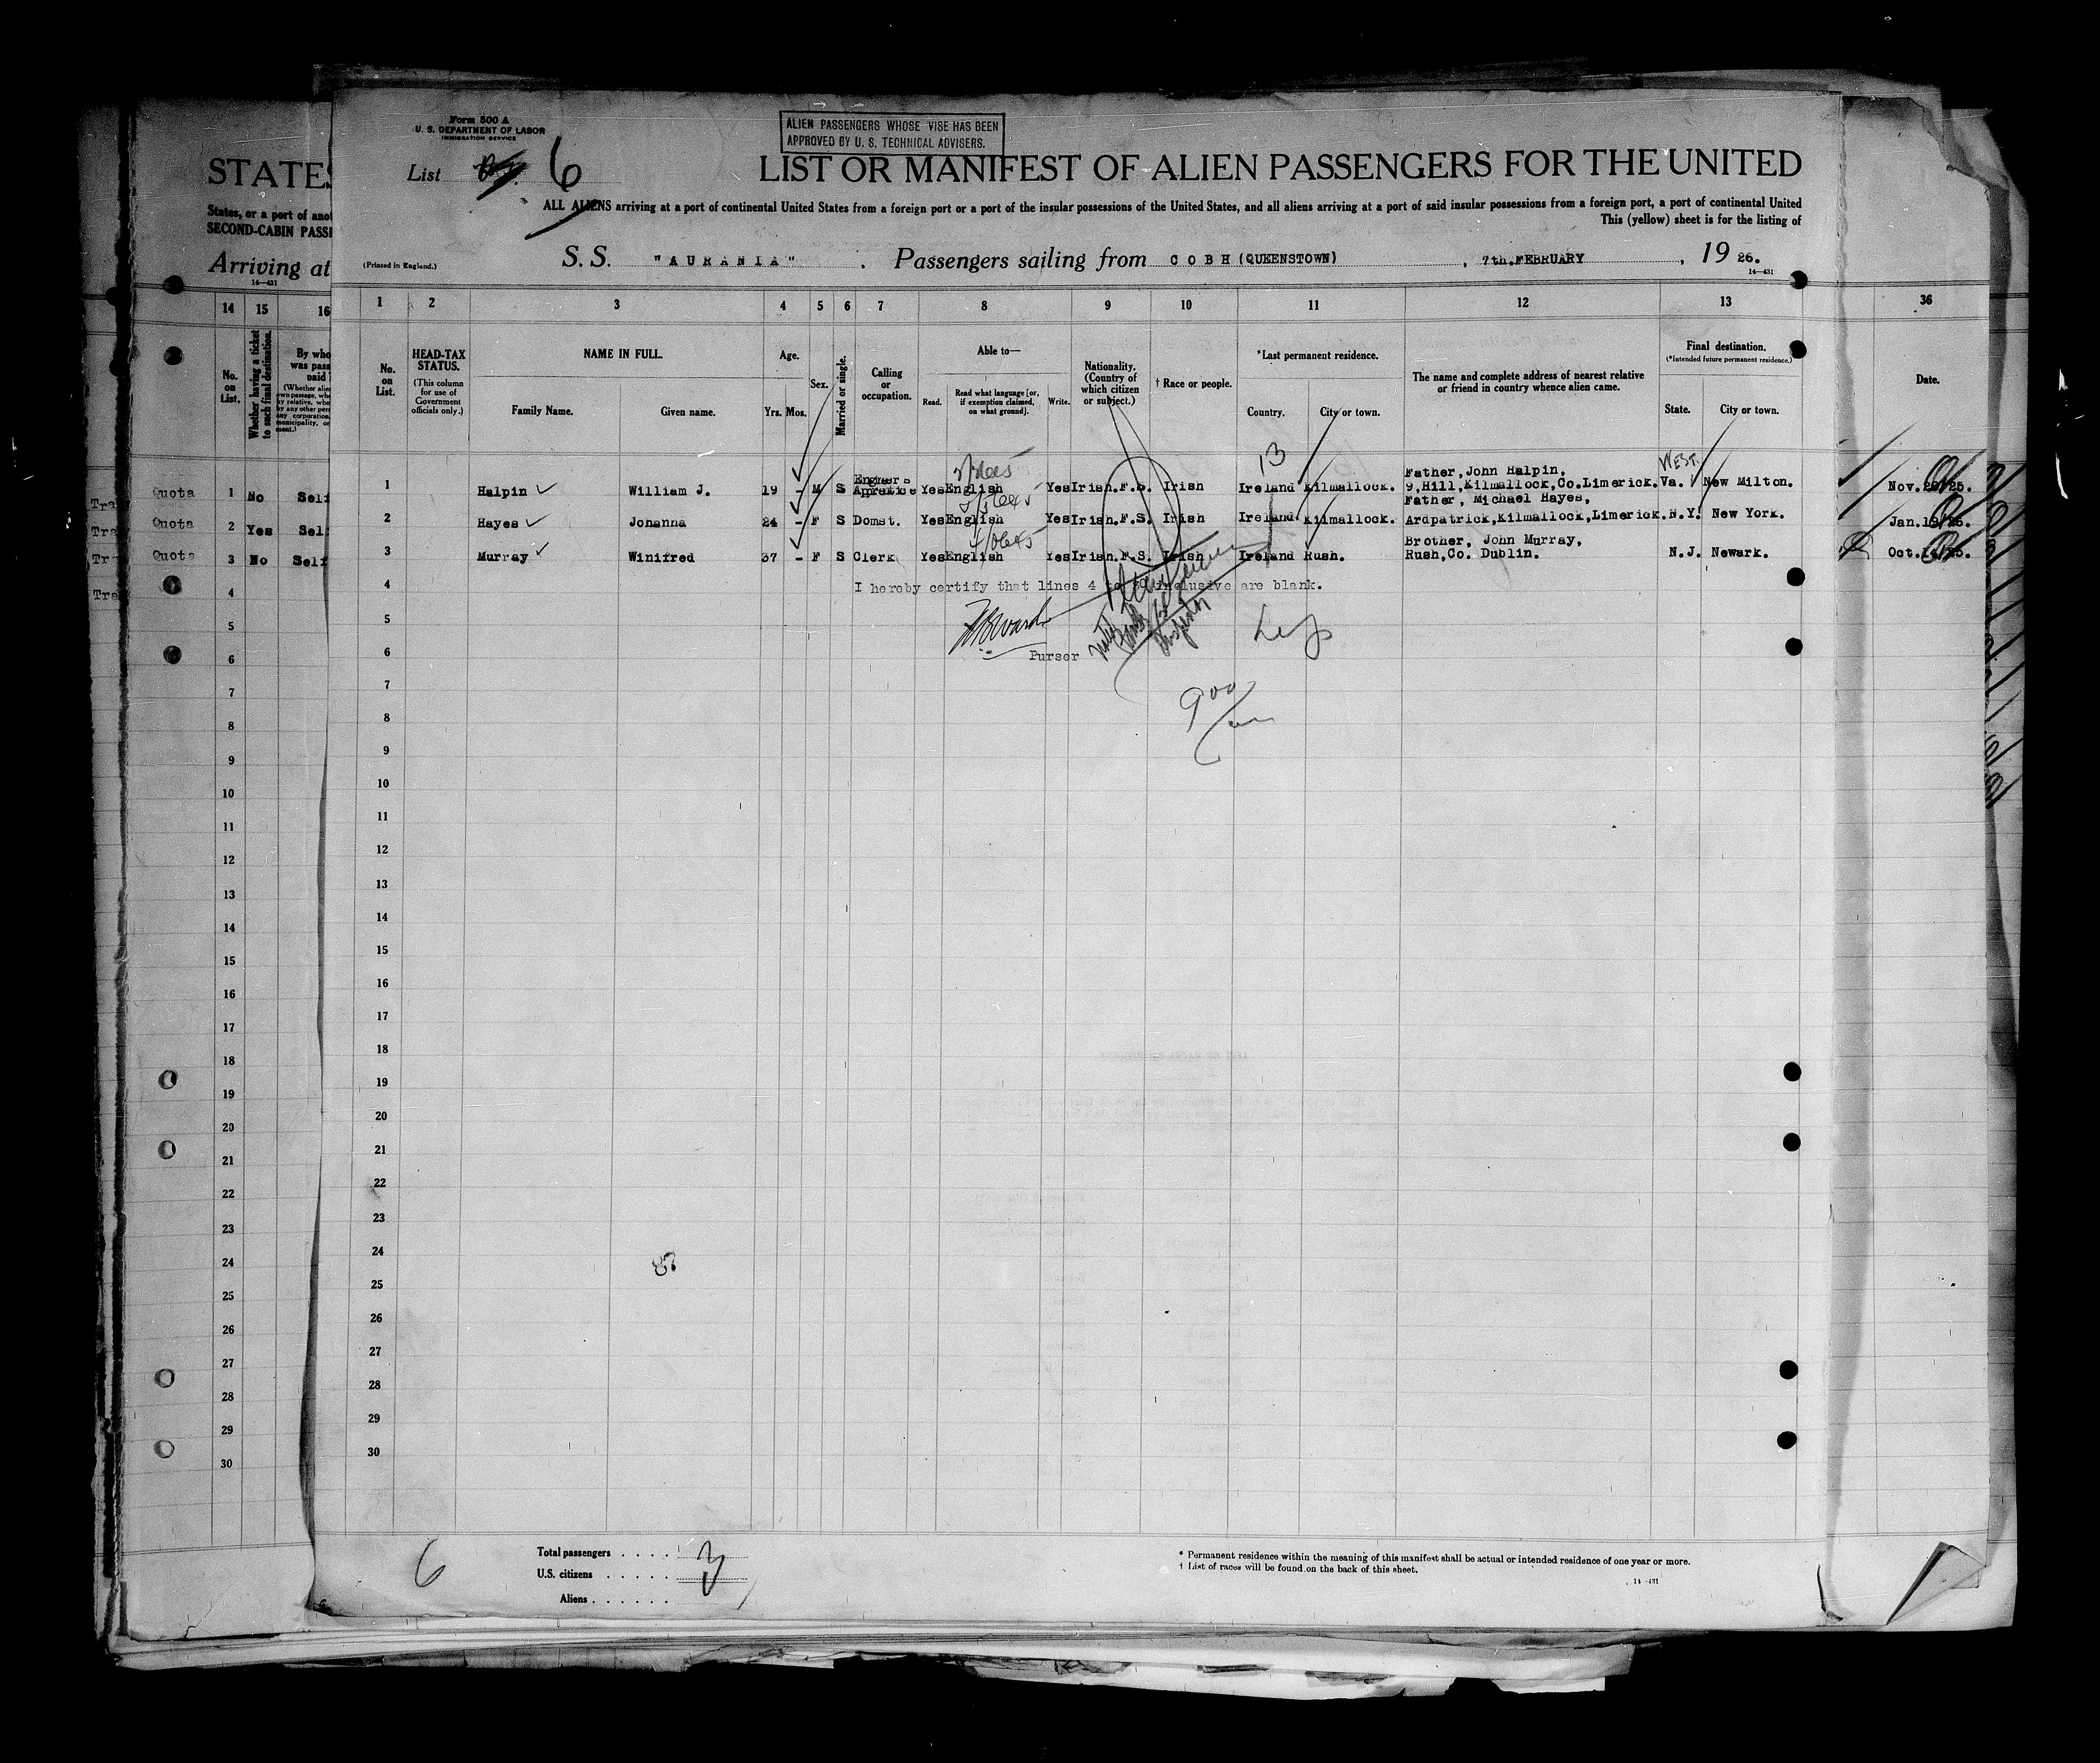 Form 500 A
U. S. DEPARTMENT OF LABOR
IMMIGRATION SERVICE
ALIEN PASSENGERS WHOSE VISE HAS BEEN
APPROVED BY U. S. TECHNICAL ADVISERS.
List 6
LIST OR MANIFEST OF ALIEN PASSENGERS FOR THE UNITED
ALL ALIENS arriving at a port of continental United States from a foreign port or a port of the insular possessions of the United States, and all aliens arriving at a port of said insular possessions from a foreign port, a port of continental United
This (yellow) sheet is for the listing of
(Printed in England.)
S. S. "AURANIA". Passengers sailing from COBH (QUEENSTOWN), 7th. FEBRUARY, 1926.
14—431
1 2 3 4 5 6 7 8 9 10 11 12 13
No. on List.
HEAD-TAX STATUS.
(This column for use of Government officials only.)
NAME IN FULL.
Family Name. Given name.
Age.
Yrs. Mos.
Sex.
Married or single.
Calling or occupation.
Able to—
Read. Read what language [or, if exemption claimed, on what ground]. Write.
Nationality. (Country of which citizen or subject.)
† Race or people.
*Last permanent residence.
Country. City or town.
The name and complete address of nearest relative or friend in country whence alien came.
Final destination.
(*Intended future permanent residence.)
State. City or town.
13
WEST.
1 Halpin William J. 19 - M S Engineers Apprentice Yes English Yes Irish.F.S. Irish Ireland Kilmallock. Father, John Halpin, 9, Hill, Kilmallock, Co. Limerick. Va. New Milton.
2 Hayes Johanna 24 - F S Domst. Yes English Yes Irish.F.S. Irish Ireland Kilmallock. Father, Michael Hayes, Ardpatrick, Kilmallock, Limerick. N.Y. New York.
3 Murray Winifred 37 - F S Clerk Yes English Yes Irish.F.S. Irish Ireland Rush. Brother, John Murray, Rush, Co. Dublin. N.J. Newark.
4 I hereby certify that lines 4 to 30 inclusive are blank.
5
6 Purser
7
8
9
10
11
12
13
14
15
16
17
18
19
20
21
22
23
24
25
26
27
28
29
30
6
Total passengers . . . . 3
U.S. citizens . . . . .
Aliens . . . . . .
* Permanent residence within the meaning of this manifest shall be actual or intended residence of one year or more.
† List of races will be found on the back of this sheet.
14—431
STATES
States, or a port of
SECOND-CABIN
Arriving at
14—431
14 15 16
No. on List.
Whether having a ticket to such final destination.
Quota 1 No Self
Quota 2 Yes Self
Quota 3 No Self
4
5
6
7
8
9
10
11
12
13
14
15
16
17
18
19
20
21
22
23
24
25
26
27
28
29
30
36
Date.